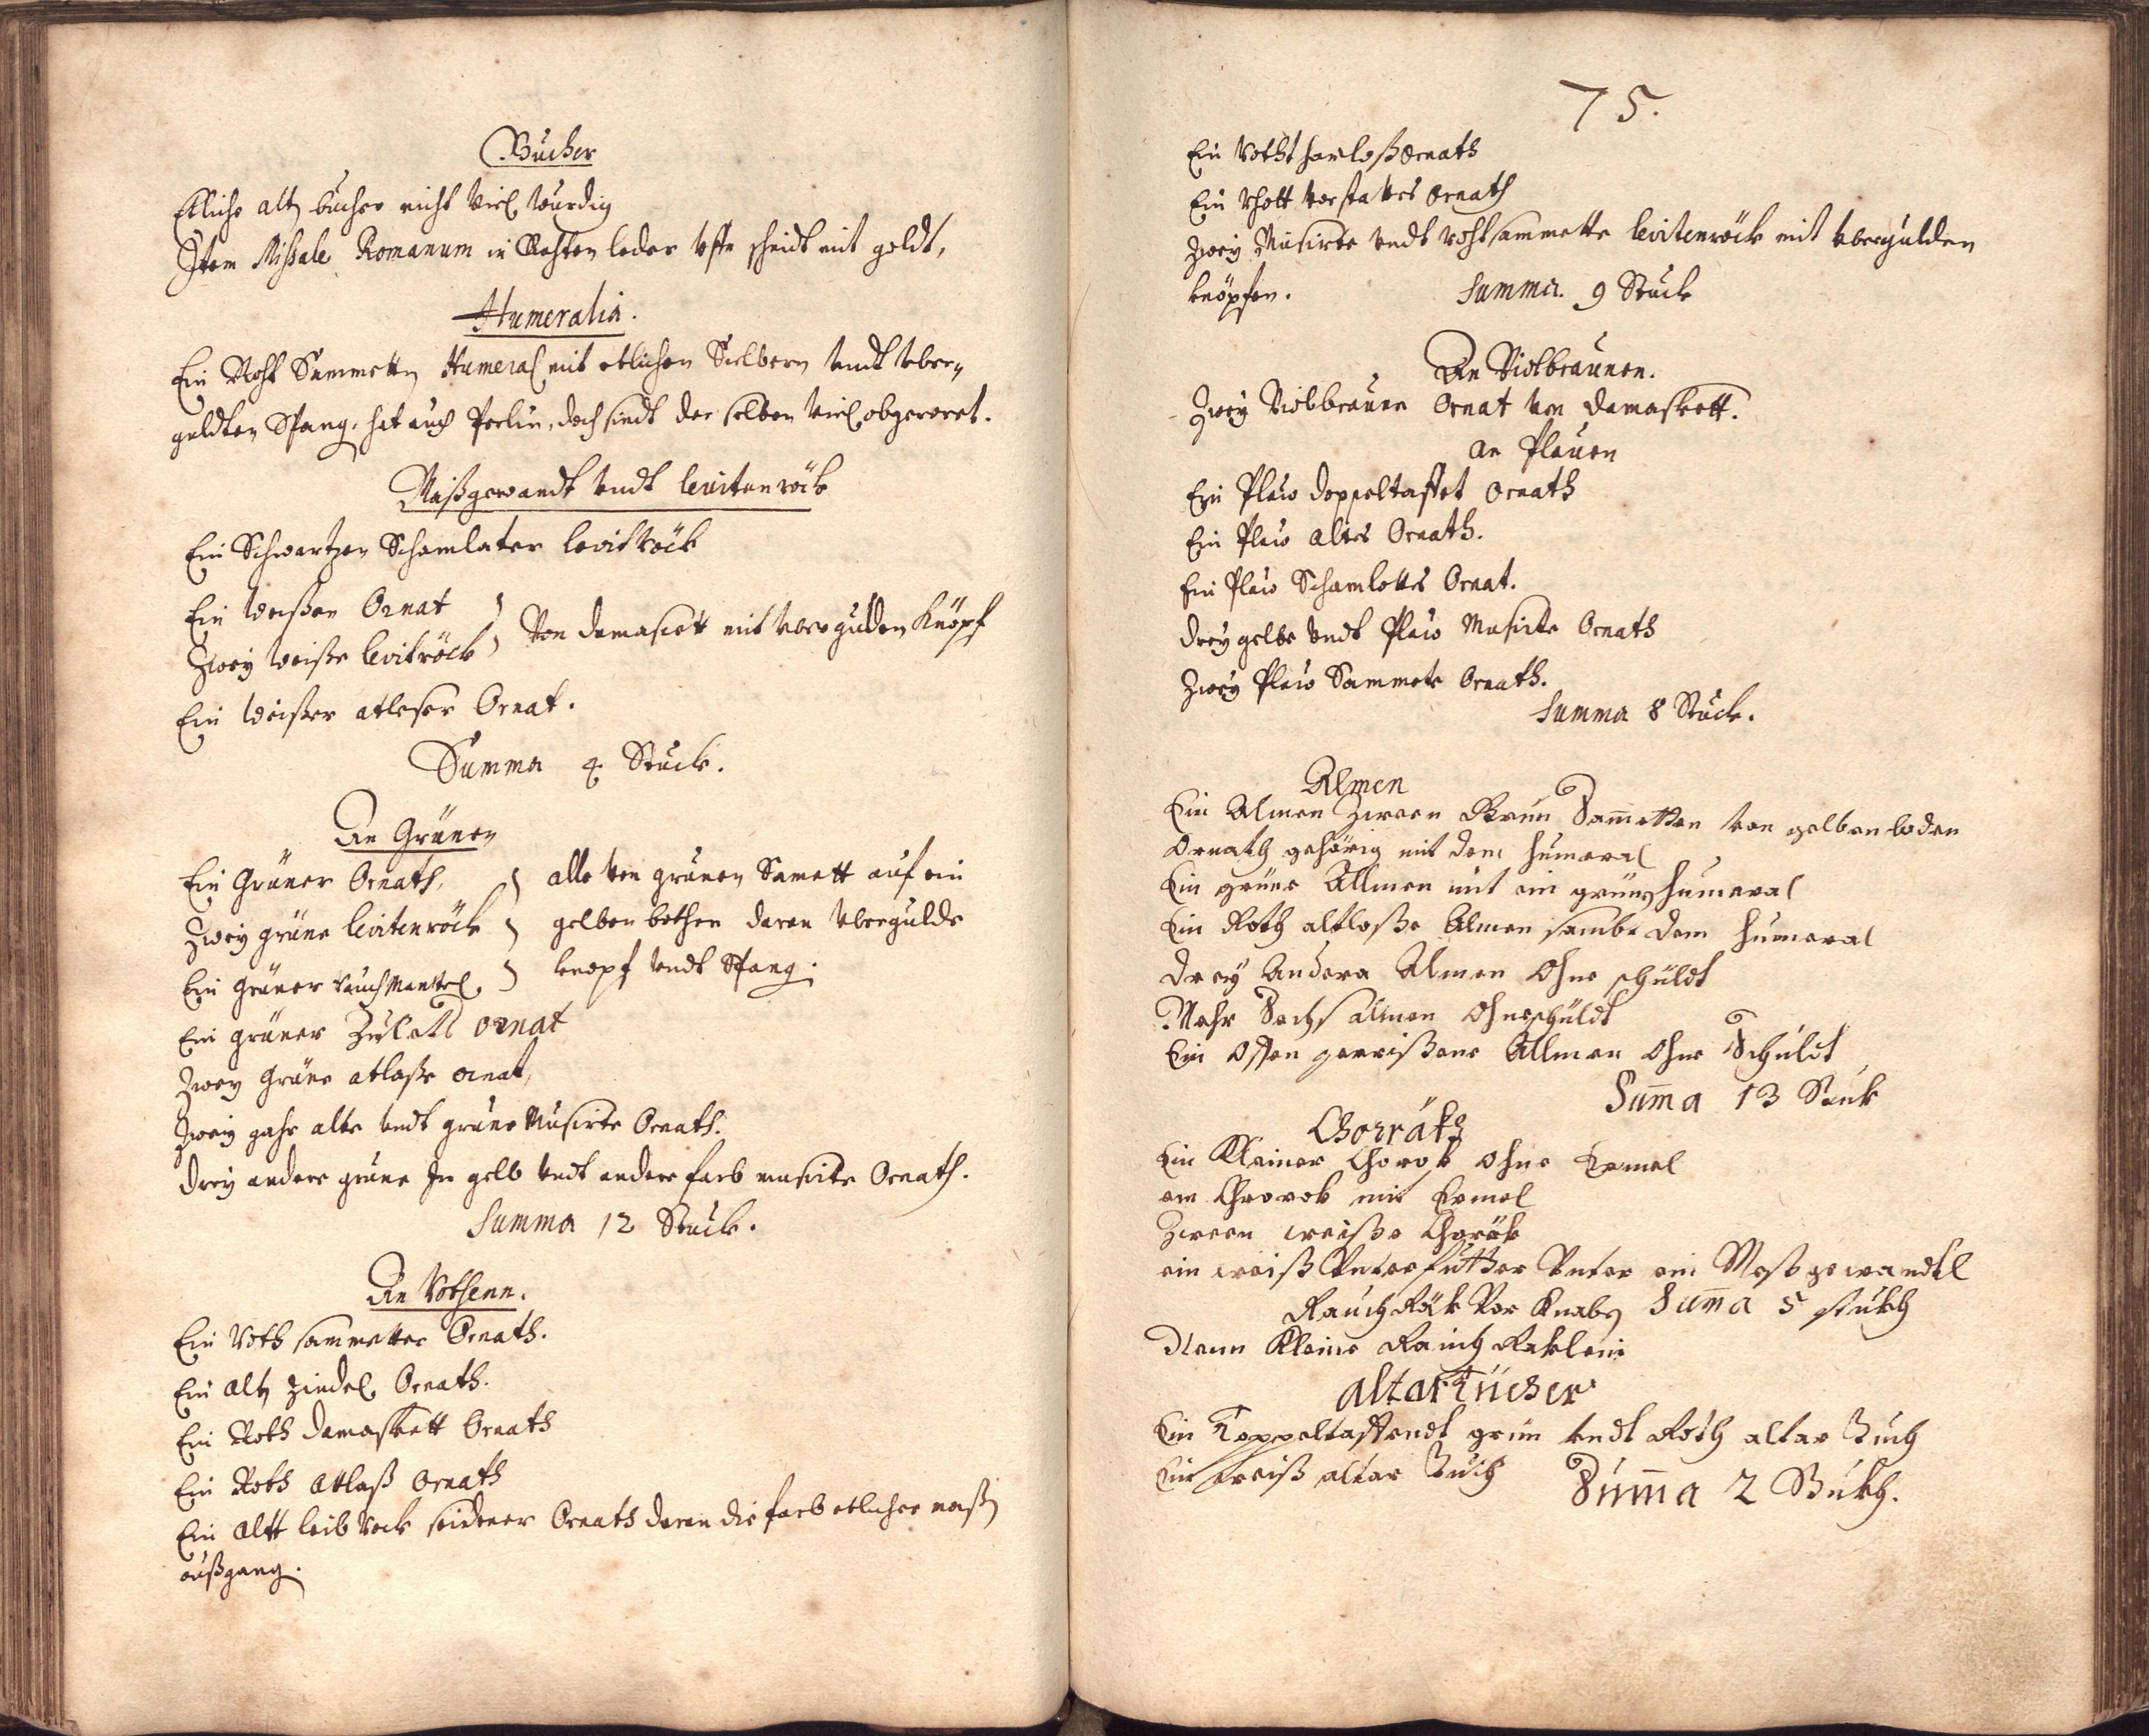 Bücher
Etliche alt bücher nicht viel würdig
Item Missale Romanum in Rothen leder vffn schnidt mit goldt,
Humeralia.
Ein Roht Sammetty Humeral mit etlichen Sielbern vndt vber„
guldten Spang, hat auch Perlin, doch sindt der selben viel abgeröret.
Meßgewandt vndt levitenröck
Ein Schwartzen Schamlater levitröck
Ein weißen Ornat
Zwey weiße levitröck } Von damascett mit vbergulden Knöpf
Ein weißer atleser Ornat.
Summa 4 Stuck.
An Grünen
Ein Grüner Ornath,
Zwey grüne levitenröck
Ein grüner rauchmanttel.
} alle von grünen Samett auf ein
gelben bothen daran vbergulde
knopf vndt Spang.
Ein grüner Ornat
Zwey Grüne atlaße Ornat,
Zwey gahr alte vndt grüne Musirte Ornath.
Drey andere grüne In gelb vndt andere farb musirte Ornath.
Summa 12 Stuck.
An Rothenn.
Ein Roth sammetter Ornath.
Ein alt zindel Ornath.
Ein Roth damaskett Ornath
Ein Roth Atlaß Ornath
Ein altt leib rock seidener Ornath daran die farb etlicher maß
außgang.
75.
Ein Rotht harloß Ornath
Ein Rhott Ornath
Zwey Musirte vndt rohtsammette levitenröck mit vbergulden
knöpfen. Summa. 9 Stuck
An Violbraunen.
Zwey Violbraune Ornat von damaskett.
an Plauen
Ein Plaw doppeltaffet Ornath
Ein Plaw altes Ornath.
Ein Plaw Schamlottes Ornat.
Drey gelbe vndt Plaw Musirte Ornath
Zwey Plaw Sammete Ornath.
Summa 8 Stuck.
Almen
Ein Almen Zween Grün Sam̅etten von gelben boden
Ornath gehörig mit dem humeral
Ein grüne Allmen mit ein grün humeral
Ein Roth altloße Almen sambt dem humeral
Drey Andere Almen Ohne schüldt
Mehr Sechs almen Ohneschüldt
Ein Offen zerrißene Allmen Ohne Schüldt
Sum̅a 13 Stuk
Chorräk
Ein Kleiner Chorok ohne Ermel
ein Chorrok mit Ermel
Zween weiße Choräk
ein weiß Vnterfutter Vnter ein Meßgewandtl
Rauch Räk Vor Knaby Sum̅a 5 stukh
Neun Kleine Rauch Räklein
altar Tücher
Ein Toppeltaffendt grün vndt Roth altar Tuch
Ein weiß altar Tuch Sum̅a 2 Stukh.